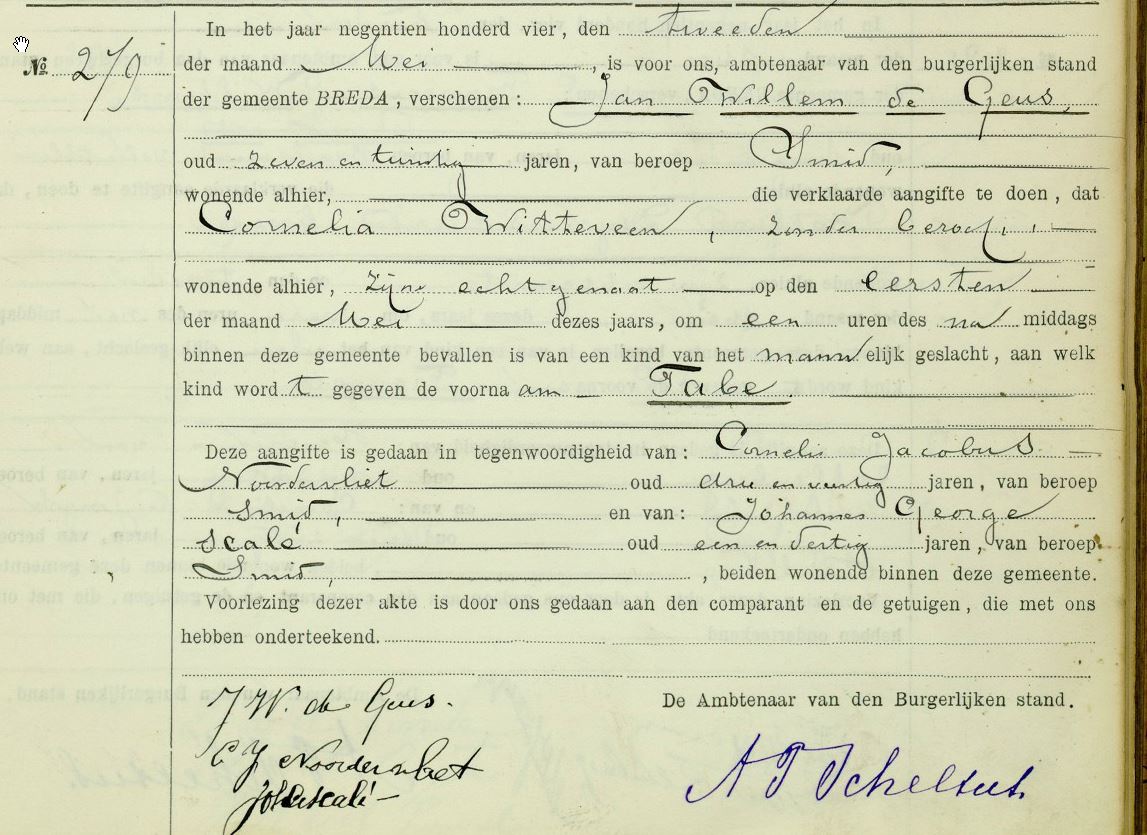 In het jaar negentien honderd vier, den tweeden
No. 279 der maand Mei, is voor ons, ambtenaar van den burgerlijken stand
der gemeente BREDA, verschenen: Jan Willem de Geus,
oud zeven en twintig jaren, van beroep Smid,
wonende alhier, die verklaarde aangifte te doen, dat
Cornelia Witteveen, zonder beroep,
wonende alhier, zijne echtgenoot op den eersten
der maand Mei dezes jaars, om een uren des na middags
binnen deze gemeente bevallen is van een kind van het mannelijk geslacht, aan welk
kind wordt gegeven de voornaam Tabe.
Deze aangifte is gedaan in tegenwoordigheid van: Cornelis Jacobus
Noordervliet oud drie en veertig jaren, van beroep
smid, en van: Johannes George
Scalé oud een en dertig jaren, van beroep
Smid, , beiden wonende binnen deze gemeente.
Voorlezing dezer akte is door ons gedaan aan den comparant en de getuigen, die met ons
hebben onderteekend.
De Ambtenaar van den Burgerlijken stand.
J W. de Geus.
C J Noordervliet